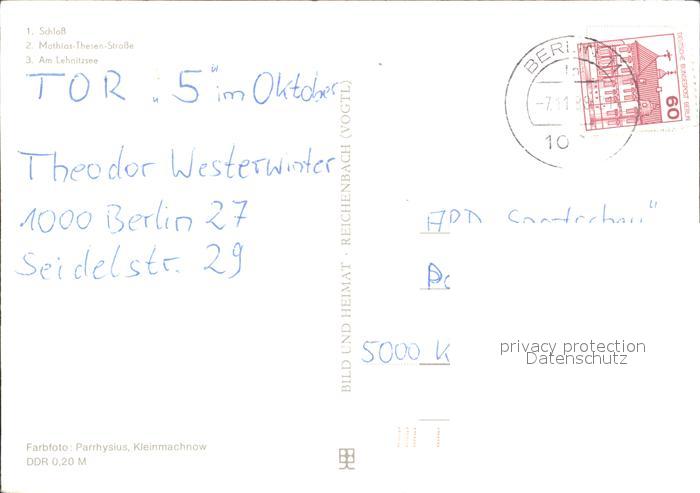 1. Schloß
2. Mathias-Thesen-Straße
3. Am Lehnitzsee
TOR „5“ im Oktober
Theodor Westerwinter
1000 Berlin 27
Seidelstr. 29
BILD UND HEIMAT · REICHENBACH (VOGTL)
Farbfoto: Parrhysius, Kleinmachnow
DDR 0,20 M
BERLIN
60
DEUTSCHE BUNDESPOST BERLIN
ARD Sportschau"
5000 K
privacy protection
Datenschutz